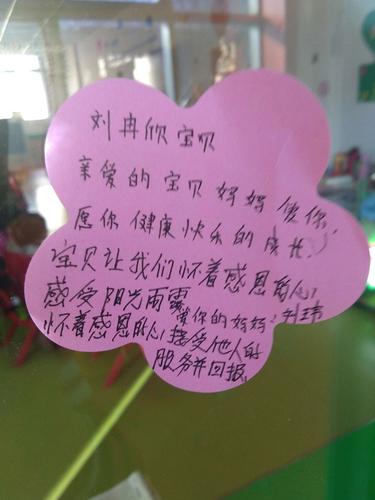 刘冉欣宝贝
亲爱的宝贝妈妈爱你,
愿你健康快乐的成长
宝贝让我们怀着感恩的心
感受阳光雨露
爱你的妈妈:刘玮
怀着感恩的心,接受他人的
服务并回报。